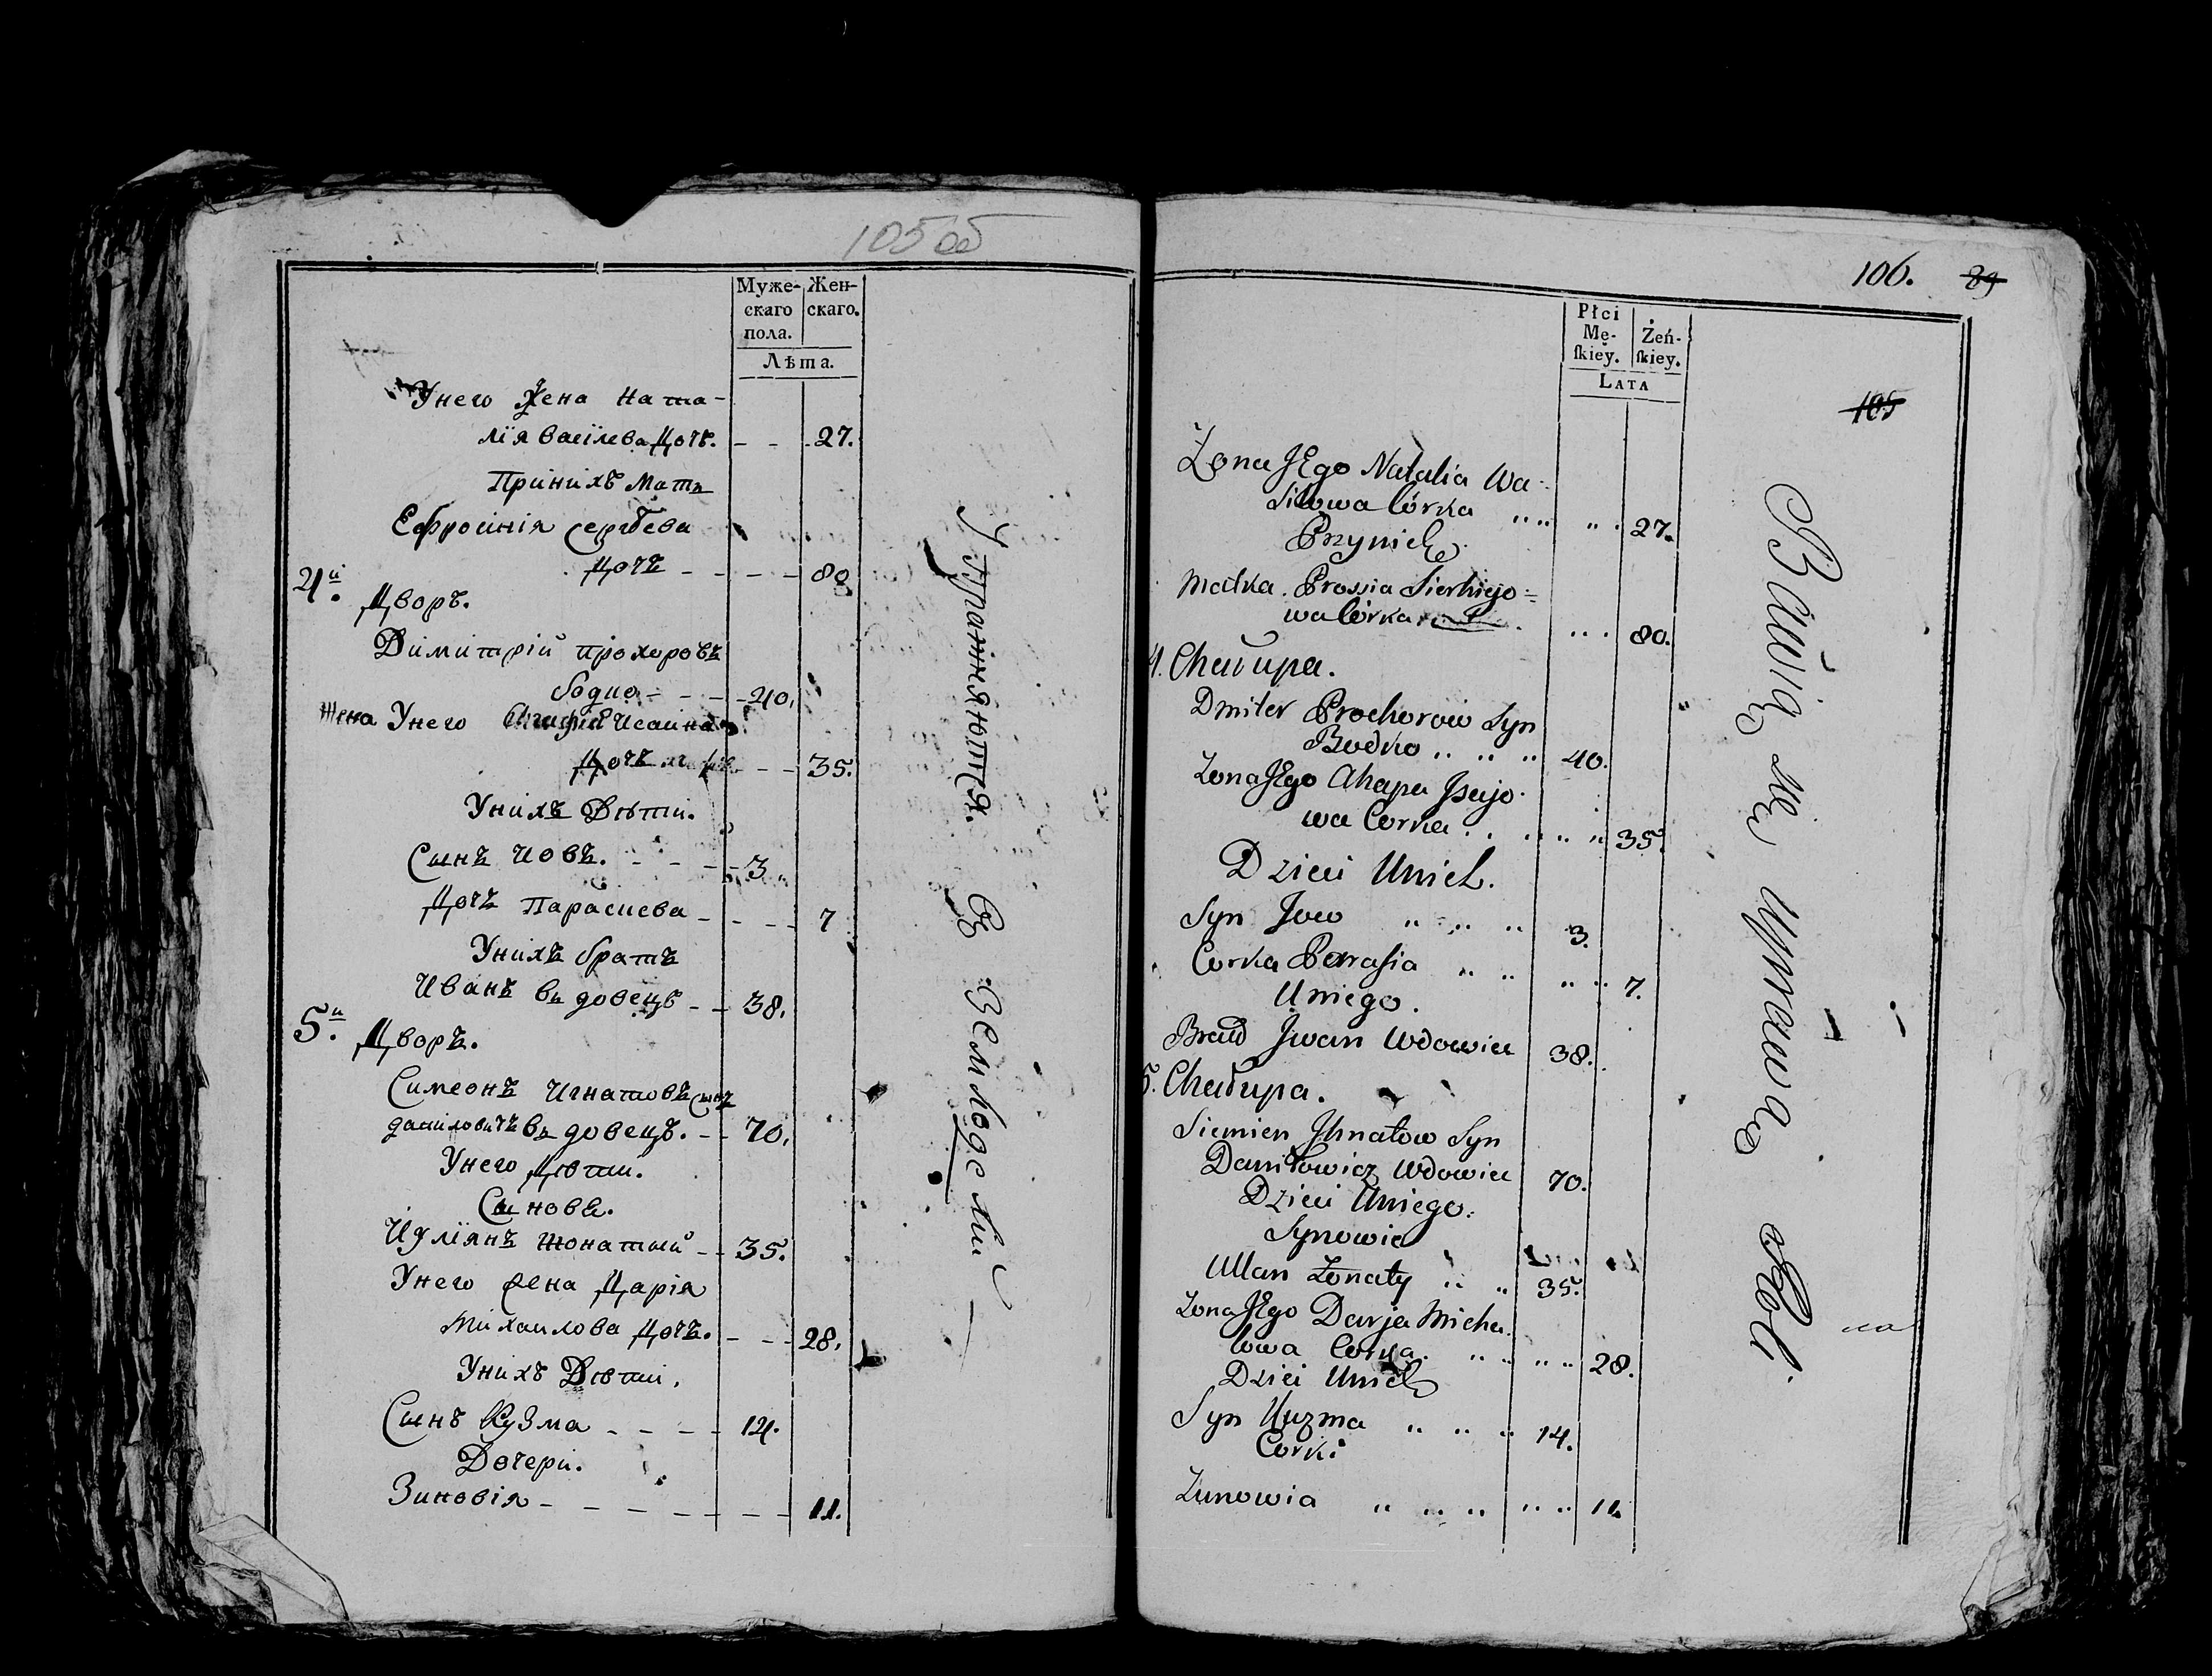 105 об
Муже- Жен-
скаго скаго.
пола.
Лѣта.
Унего Жена Ната-
лїя васїлева Дочъ. - - - 27.
Принихъ мать
Ефросінія сергѣева
Дочь - - - - 80
4й. Дворъ.
Димитрій прохоровъ
бодно - - - - 40.
жена Унего Исаина
Дочь - - 35.
Унихъ Дѣти.
Сынъ Иовъ. - - - - 3.
Дочь Парасиева - - - - 7
Унихъ братъ
Иванъ вьдовецъ - - 38.
5й. Дворъ.
Симеонъ Игнатовъ сынъ
даниловичъ вьдовецъ. - - 70.
Унего Дѣти.
Сыновѣ.
Иулїянъ жонатый - - 35.
Унего жена Дарія
Михаилова Дочь. - - - 28.
Унихъ Дѣти.
Сынъ Кузма - - - - 14.
Дочери.
Зиновія - - - - - - - 11.
Упражняются. въ Земледелии
106. 89
105
Płci
Mę- Żeń-
skiey. skiey.
LATA
Żona JEgo Natalia Wa-
silowa Córka 27.
Przynich
Matka. Prosia Sierhiejo=
wa Córka 80.
4. Chałupa.
Dmiter Prochorow Syn
Bodko 40.
Zona JEgo Ahapa Jsajo
wa Corka 35.
Dzieci Unich.
Syn Jow 3.
Corka Parasia 7.
Uniego.
Brad Jwan Wdowiec 38.
5. Chałupa.
Siemien Jhnatow Syn
Daniłowicz Wdowiec 70.
Dzieci Uniego.
Synowie
Ullan Zonaty 35.
Zona JEgo Darja Micha
lowa Corka. 28.
Dzieci Unich
Syn Kuzma 14.
Corki
Zunowia 11.
Bawią się Uprawą Roli